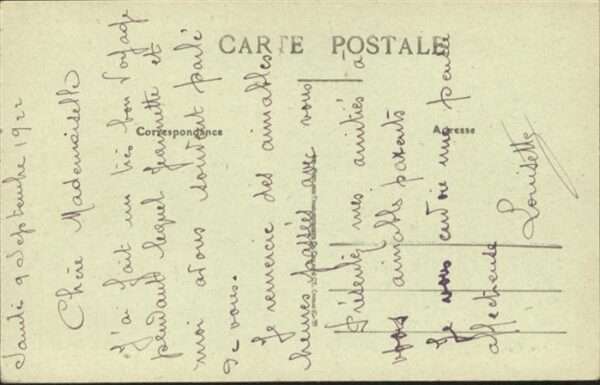 CARTE POSTALE
Correspondance
Adresse
Samedi 9 Septembre 1922
Chère Mademoiselle
J'ai fait un très bon voyage
pendant lequel Jeannette et
moi avons souvent parlé
de vous.
Je remercie des aimables
heures passées avec vous
Présentez mes amitiés à
vos aimables parents
Je vous envoie une pensée
affectueuse
Louisette